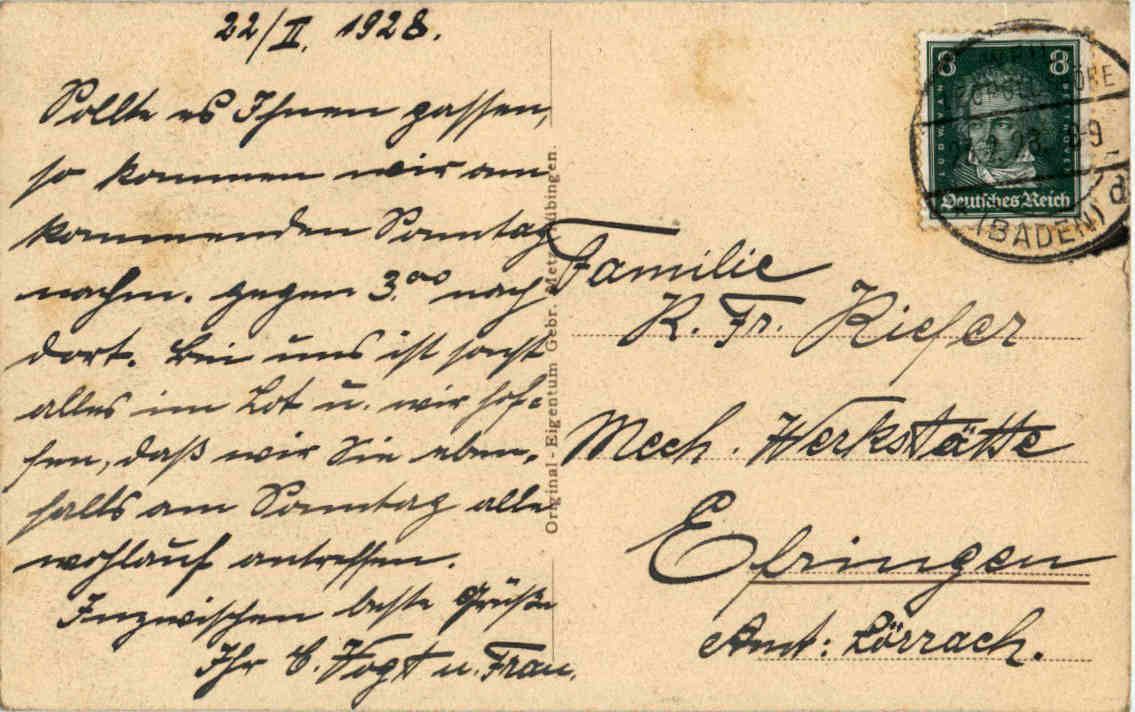 22/II. 1928.
Sollte es Ihnen passen,
so kommen wir am
kommenden Sonntag
nachm. gegen 3.00 nach
dort. Bei uns ist sonst
alles im Lot u. wir hof-
fen, daß wir Sie eben-
falls am Sonntag alle
wohlauf antreffen.
Inzwischen beste Grüße
Ihr C. Vogt u. Frau.
Original-Eigentum Gebr. Metz Tübingen.
8 8
Deutsches Reich
(BADEN) d
8-9
Familie
K. Fr. Kiefer
Mech. Werkstätte
Efringen
Amt: Lörrach.